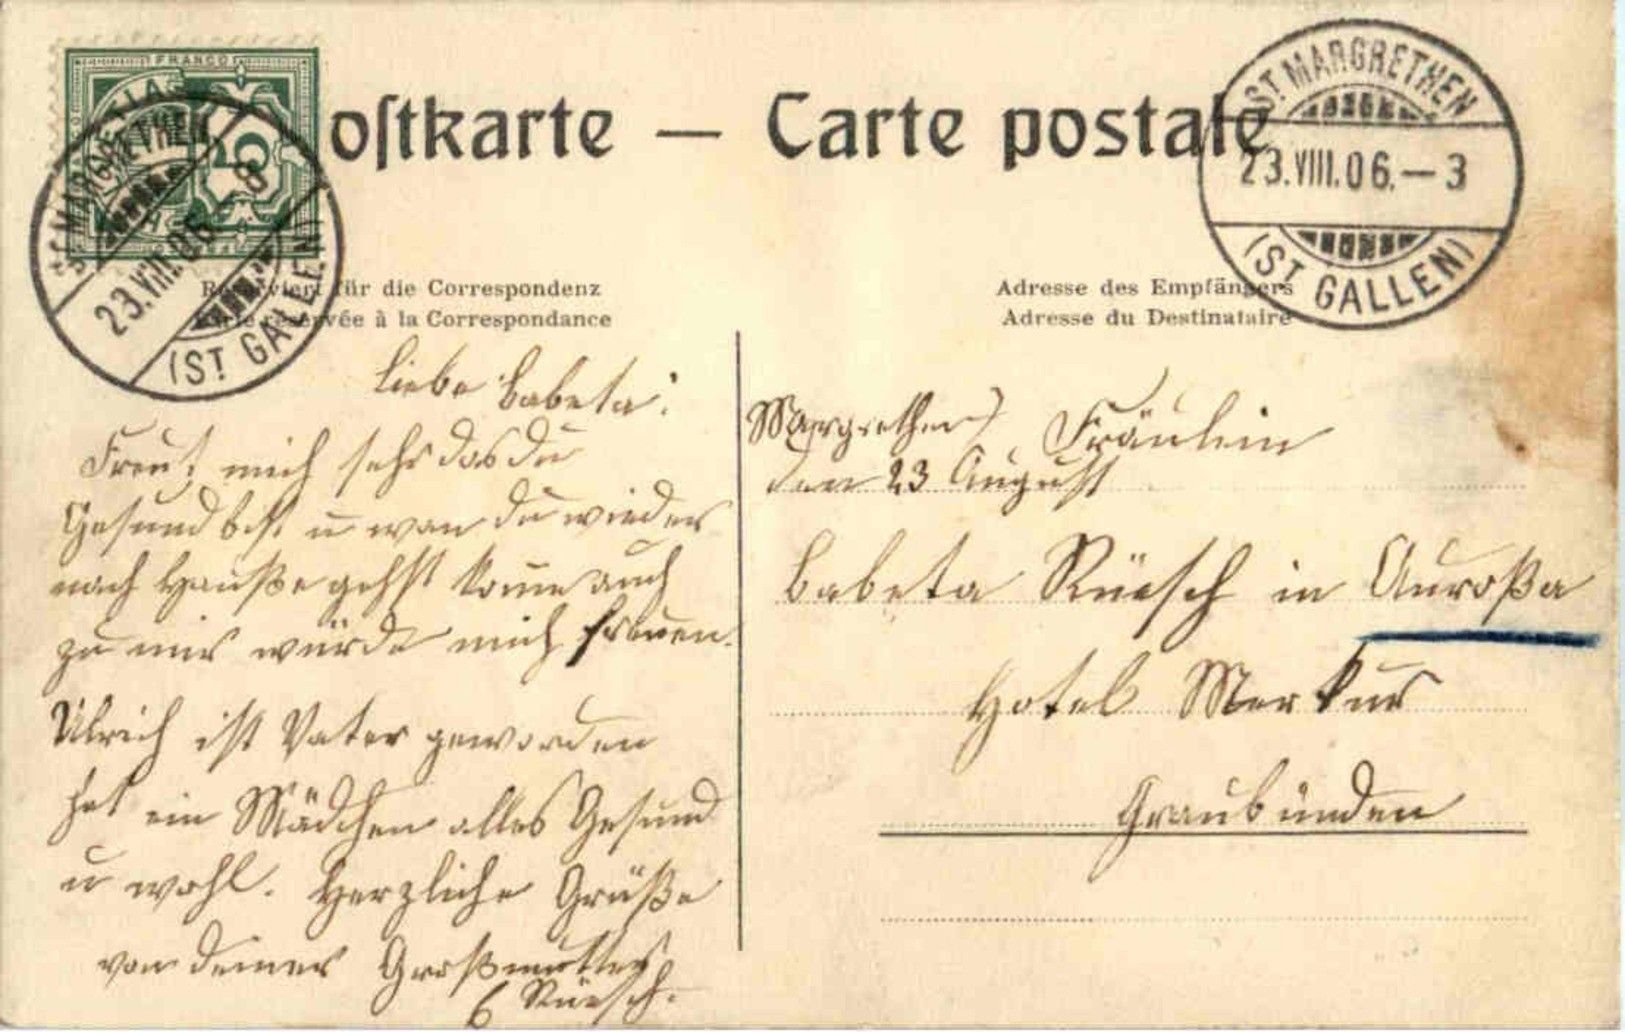 FRANCO
HELVETIA
5
ST MARGRETHEN
23.VIII.06.–8
(ST GALLEN)
Postkarte — Carte postale
ST MARGRETHEN
23.VIII.06.–3
(ST GALLEN)
Reserviert für die Correspondenz
Partie réservée à la Correspondance
Adresse des Empfängers
Adresse du Destinataire
Liebe Babeta!
Freut mich sehr das du
Gesund bist u wan du wieder
nach Hauße gehst kome auch
zu mir würde mich freuen.
Ulrich ist Vater geworden
hat ein Mädchen alles Gesund
u wohl. Herzliche Grüße
von deiner Großmutter
Rüesch.
Margrethen
den 23 August
Fräulein
Babeta Rüesch in Auroßa
Hotel Merkur
Graubünden